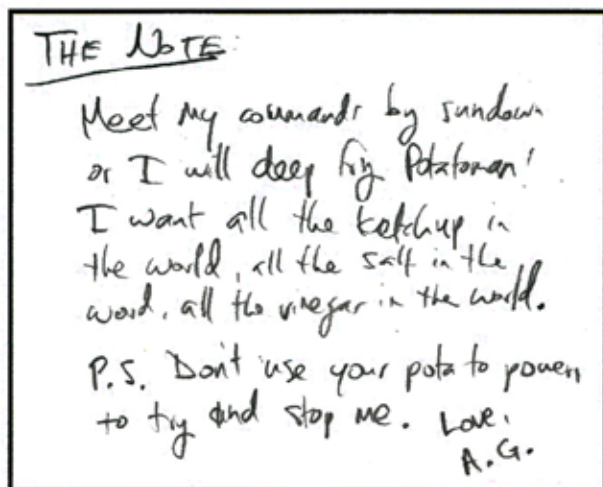 THE NOTE:
Meet my commands by sundown
or I will deep fry Potatoman!
I want all the ketchup in
the world, all the salt in the
word, all the vinegar in the world.
P.S. Don't use your potato powers
to try and stop me. Love,
A.G.